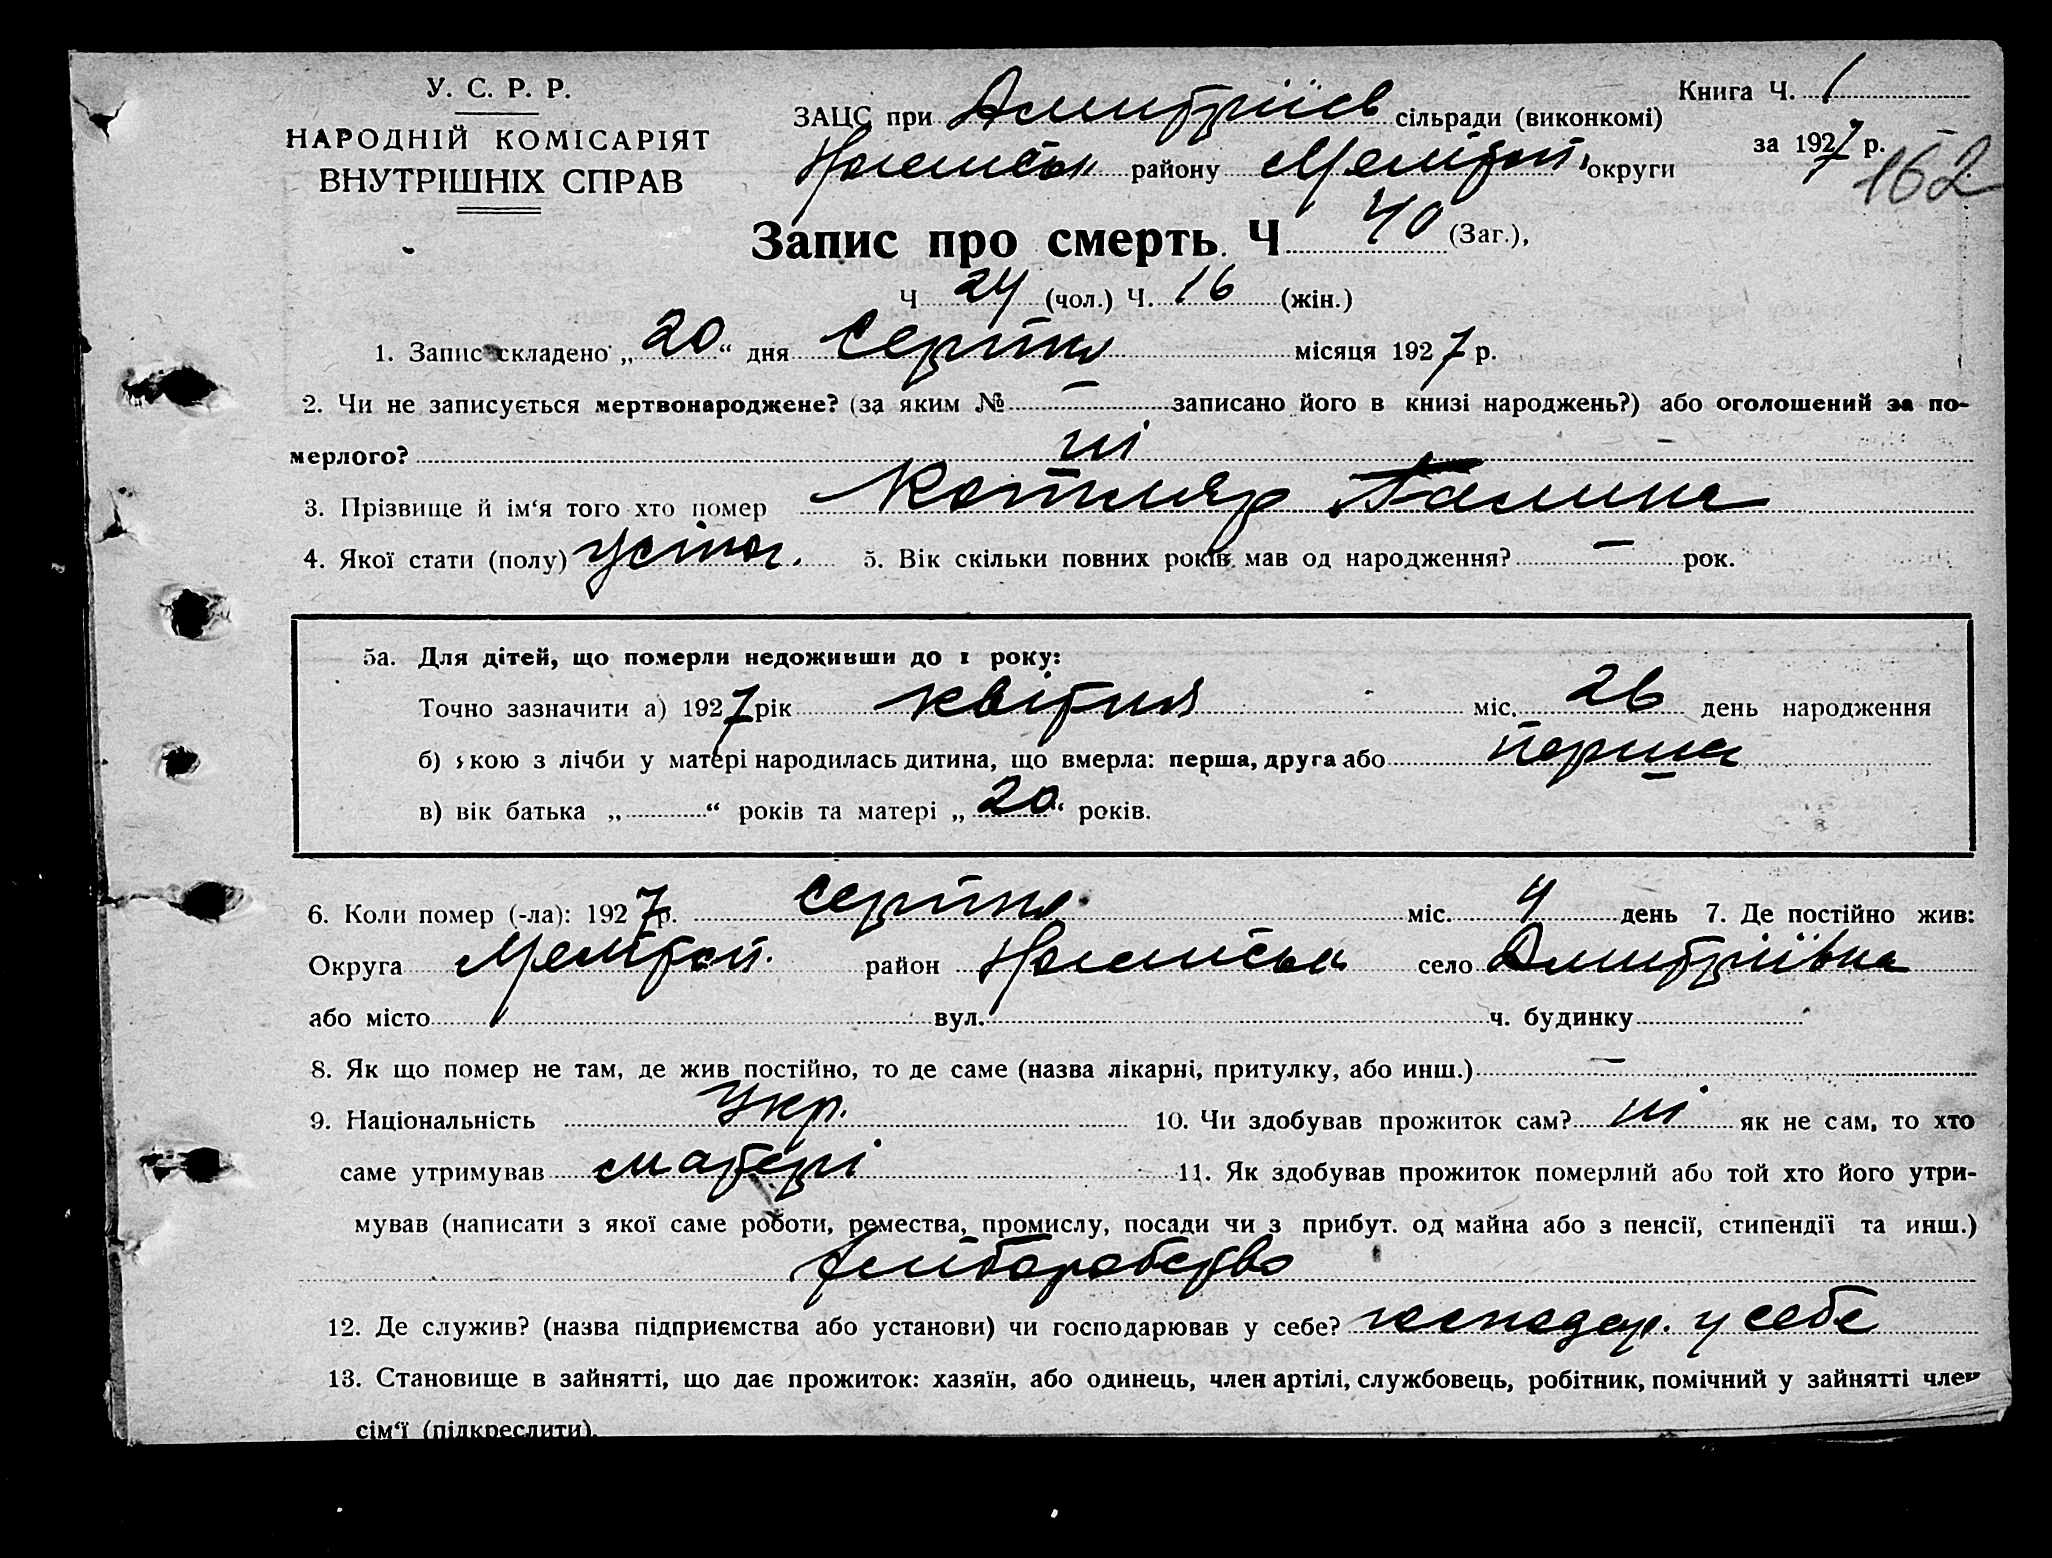 У. С. Р. Р.
НАРОДНІЙ КОМІСАРІЯТ
ВНУТРІШНІХ СПРАВ
ЗАЦС при Дмитріїв сільради (виконкомі)
району Мелітоп. округи
Книга Ч. 1
за 1927 р.
162
Запис про смерть Ч 40 (Заг.),
Ч 24 (чол.) Ч. 16 (жін.)
1. Запис складено „20“ дня серпня місяця 1927 р.
2. Чи не записується мертвонароджене? (за яким № — записано його в книзі народжень?) або оголошений за по-
мерлого? ні
3. Прізвище й ім‘я того хто помер Котляр Галина
4. Якої стати (полу) 5. Вік скільки повних років мав од народження? — рок.
5а. Для дітей, що померли недоживши до 1 року:
Точно зазначити а) 1927 рік квітня міс. 26 день народження
б) якою з лічби у матері народилась дитина, що вмерла: перша, друга або перша
в) вік батька „ “ років та матері „20“ років.
6. Коли помер (-ла): 1927 р. серпня міс. 4 день 7. Де постійно жив:
Округа Мелітоп. район село Дмитріївка
або місто вул. ч. будинку
8. Як що помер не там, де жив постійно, то де саме (назва лікарні, притулку, або инш.) —
9. Національність Укр. 10. Чи здобував прожиток сам? ні як не сам, то хто
саме утримував матері 11. Як здобував прожиток померлий або той хто його утри-
мував (написати з якої саме роботи, ремества, промислу, посади чи з прибут. од майна або з пенсії, стипендії та инш.)
хліборобство
12. Де служив? (назва підприємства або установи) чи господарював у себе? господар. у себе
13. Становище в зайнятті, що дає прожиток: хазяїн, або одинець, член артілі, службовець, робітник, помічний у зайнятті член
сім‘ї (підкреслити).